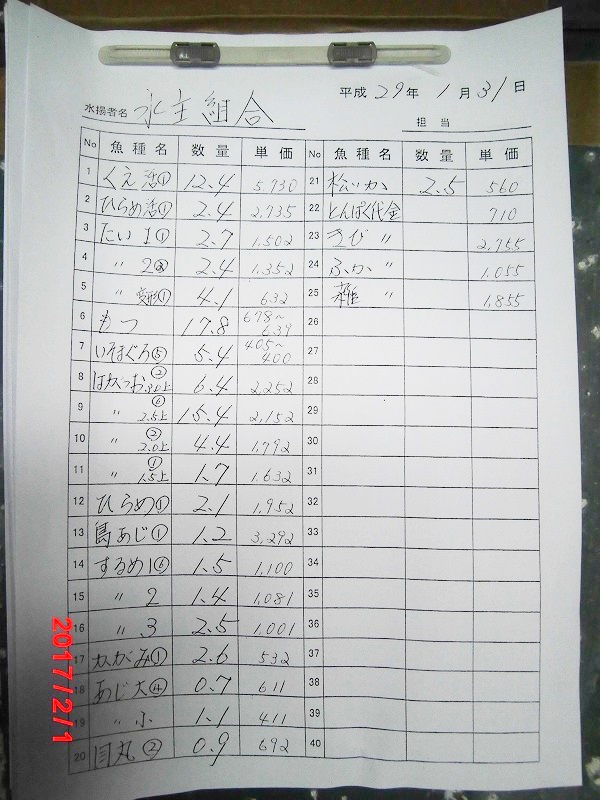 平成 29年 1月 31日
水揚者名 永主組合
担当
No 魚種名 数量 単価 No 魚種名 数量 単価
1 くえ活① 12.4 5,730 21 松いか 2.5 560
2 ひらめ活① 2.4 2,735 22 とんぼく代金 710
3 たい1① 2.7 1,502 23 きび 〃 2,755
4 〃 2② 2.4 1,352 24 ふか 〃 1,055
5 〃 変形① 4.1 632 25 雑 〃 1,855
6 もつ 17.8 678〜639 26
7 いそまぐろ⑤ 5.4 405〜400 27
8 はがつお② 3.0上 6.4 2,252 28
9 〃 ⑥ 2.5上 15.4 2,152 29
10 〃 ② 2.0上 4.4 1,792 30
11 〃 ① 1.5上 1.7 1,632 31
12 ひらめ① 2.1 1,952 32
13 島あじ① 1.2 3,292 33
14 するめ1⑥ 1.5 1,100 34
15 〃 2 1.4 1,081 35
16 〃 3 2.5 1,001 36
17 かがみ① 2.6 532 37
18 あじ大④ 0.7 611 38
19 〃 小 1.1 411 39
20 目丸② 0.9 692 40
2017/2/1